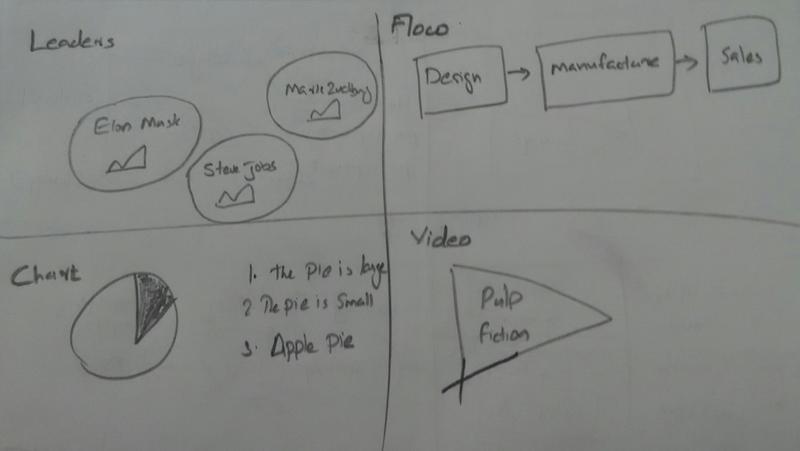 Leaders
Elon Musk
Steve Jobs
Flow
Design
Manufacture
Sales
Chart
1. the pie is large
2 The pie is Small
3. Apple Pie
Video
Pulp
fiction